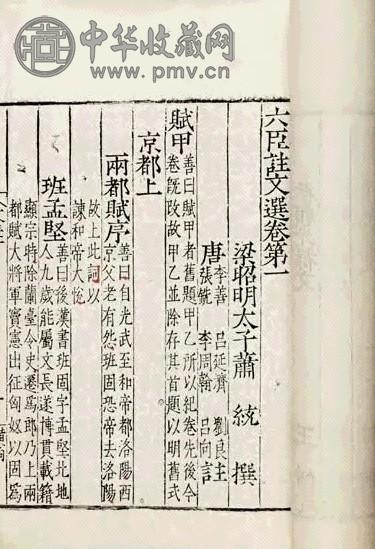 中华收藏网
www.pmv.cn
六臣註文選卷第一
梁昭明太子蕭統撰
唐
李善 呂延濟 劉良註
張銑 李周翰 呂向註
賦甲
善曰賦甲者舊題甲乙所以紀卷先後今
卷既改故甲乙並除存其首題以明舊式
京都上
兩都賦序
善曰自光武至和帝都洛陽西
京父老有怨班固恐帝去洛陽
故上此詞以
諫和帝大悅
班孟堅
善曰後漢書班固字孟堅北地
人九歲能屬文長遂博貫載籍
顯宗時除蘭臺令史遷爲郎乃上兩
都賦大將軍竇憲出征匈奴以固爲